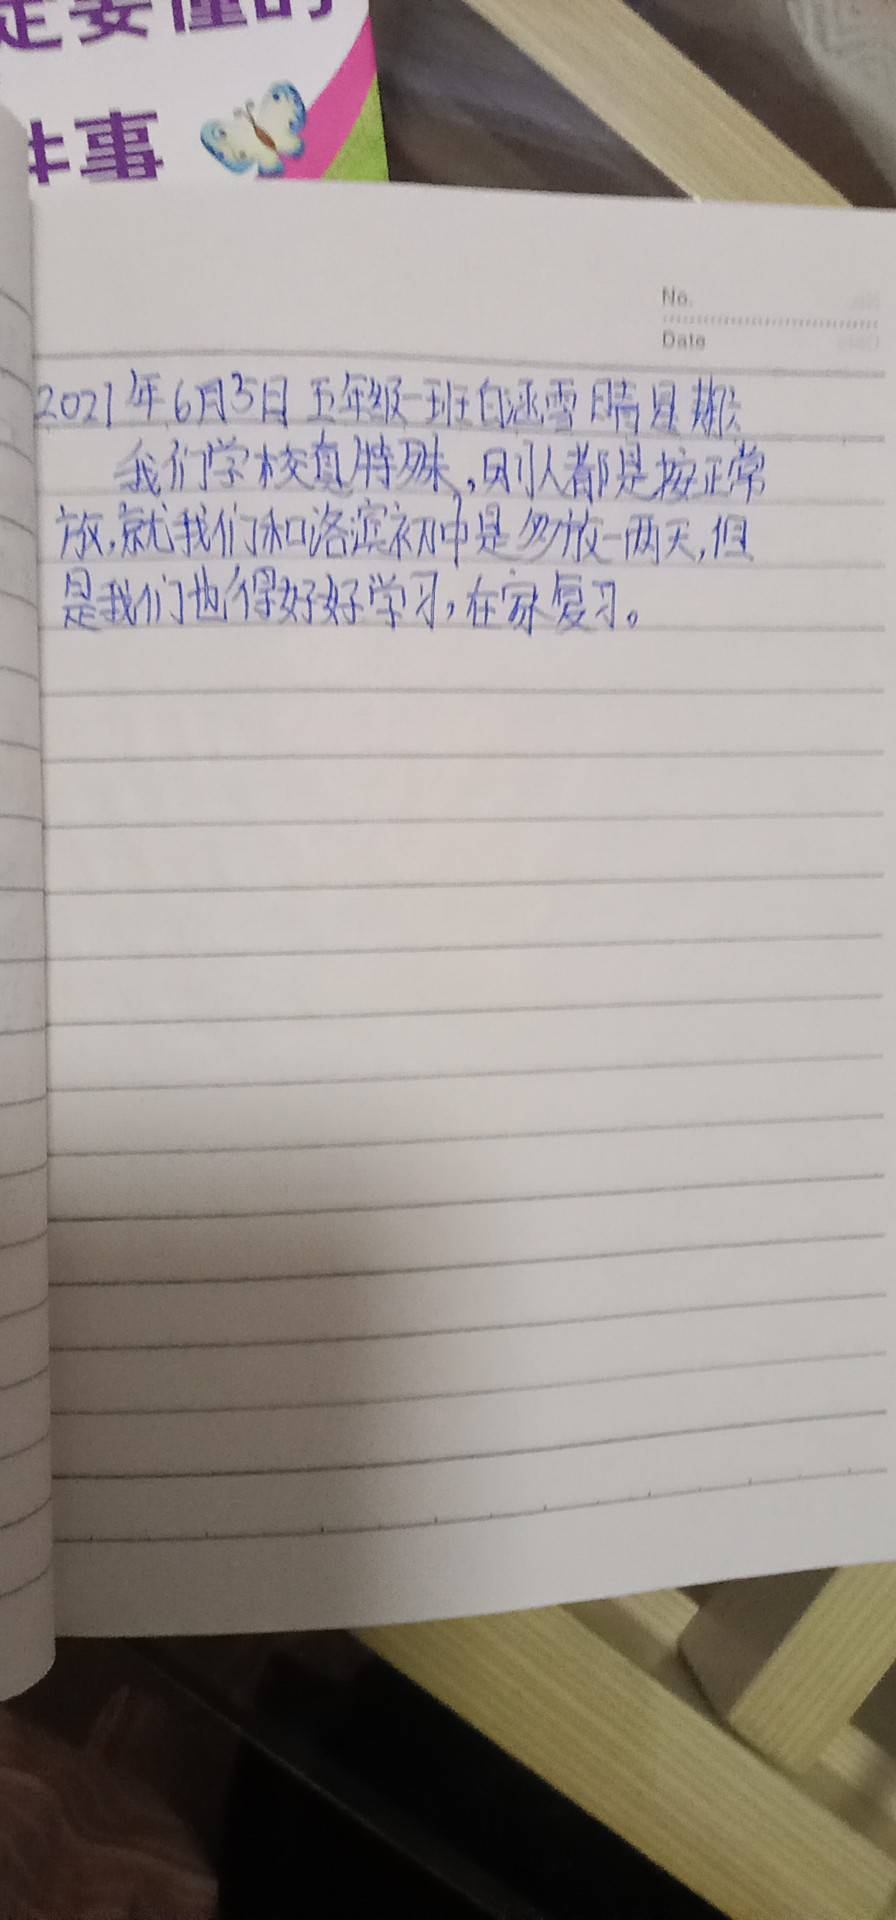 定要懂的
件事
No.
Date
2021年6月3日 五年级一班白涵雪 晴 星期
我们学校真特殊,别人都是按正常
放,就我们和洛滨初中是多放一两天,但
是我们也得好好学习,在家复习。